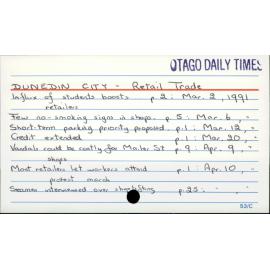 OTAGO DAILY TIMES
DUNEDIN CITY - Retail Trade
Influx of students boosts p.2: Mar. 2, 1991
retailers
Few no-smoking signs in shops. p.5: Mar. 6, "
Short-term parking priority proposed. p.1: Mar. 12, "
Credit extended p.1: Mar. 20, "
Vandals could be costly for St p.9: Apr. 9, "
shops
Most retailers let workers attend p.1: Apr. 10, "
protest march
interviewed over shoplifting p.25: "
53/C